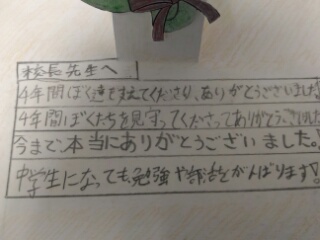 校長先生へ
4年間ぼく達を支えてくださり、ありがとうございました!
4年間ぼくたちを見守ってくださってありがとうございました
今まで、本当にありがとうございました!
中学生になっても、勉強や部活をがんばります!